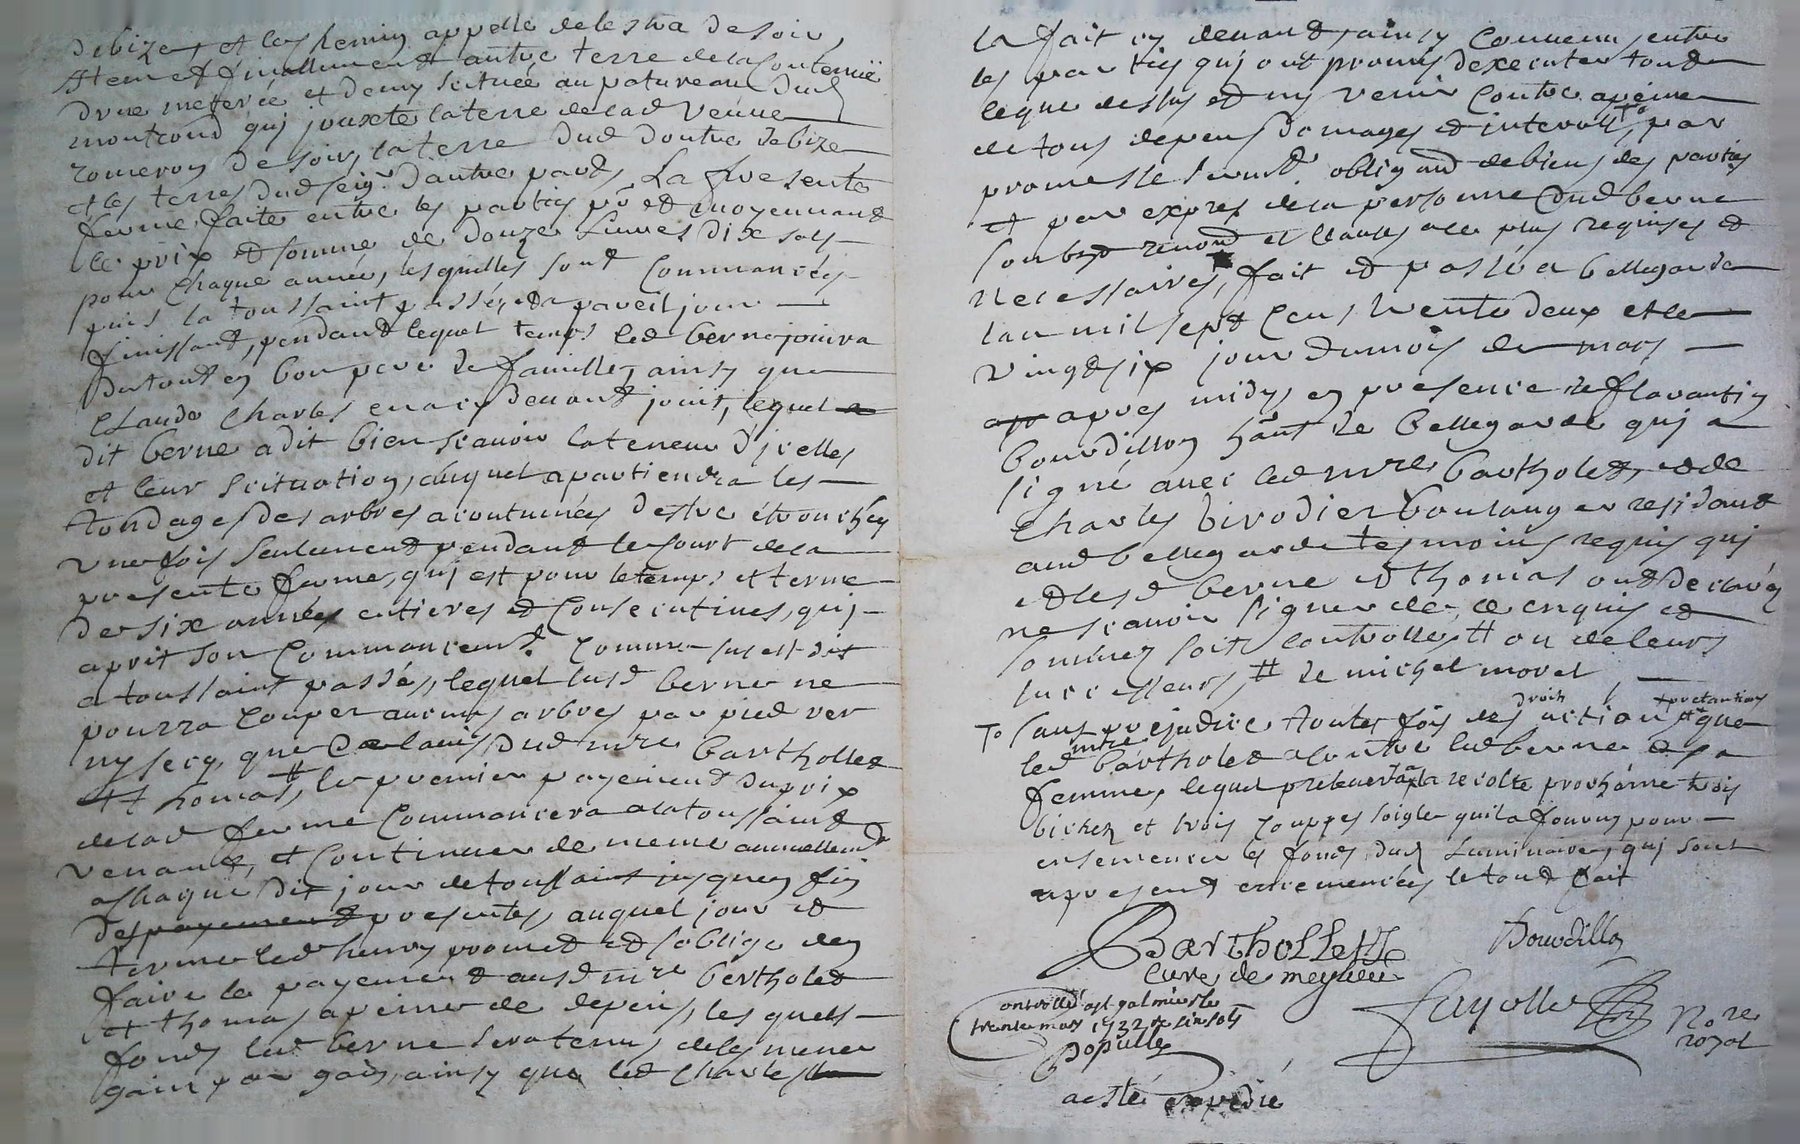 de bize, et le chemin appellé de lestra de soir,
Item et finallement autre terre de la contenüe
d'vne meterée et demy scituée au patureau dud
montrond qui jouxte la terre de lad venue
romeron de soir, la terre dud doutre de bize
et les terres dud seigr. d'autre part, La presente
ferme faite entre les parties pñ et moyennant
le prix et somme de douze Liures dix sols
pour chaque année, lesquelles sont commancées
puis la toussaint passée et a pareil jour
finissant, pendant lequel temps led berne jouira
du tout en bon pere de famille, ainsy que
Claude Charles en a cy devant joüit, lequel
dit berne a dit bien scauoir la teneur d'jcelles
et leur scituation, auquel apartiendra les
tondages des arbres acoutumées destre ébouchés
vne fois seulement pendant le court de la
presente ferme, qui est pour le temps et terme
de six années entieres et consecutiues, qui
aprit son commancemt. comme sus est dit
a toussaint passée, lequel susd berne ne
pourra couper aucuns arbres par pied ver
ny secq, que de lauis dud mre Barthollet
et thomas, le premier payement du prix
de lad ferme commancera a la toussaint
venant, et continuer de meme annuellemt
a chaque dit jour de toussaint jusques fin
des payement presentes, auquel jour et
terme led henry promet et s'oblige den
faire le payement ausd mre bertholet
et thomas a peine de depens, les quels
fonds led berne sera tenu de les mener
gain par gain, ainsy que led Charles
la fait cy deuant, ainsy conuenu entre
les parties qui ont promis dexecuter tout
le que dessus et ny venir contre a peine
de tous depens domages et interests, To par
promesse sermt obligaon de biens des parties
et par expres de la personne dud berne
soubz renond et clauses a ce plus requises et
necessaires, fait et passé a bellegarde
lan mil sept cens trente deux et le
vingt six jour du mois de mars
apr apres midy, en presence de flavantin
bourdillon hãnt de bellegarde qui a
signé auec led mre bartholet, et de
Charles birodier boulanger residant
aud bellegarde tesmoins requis qui
et lesd berne et thomas ont declarés
ne scauoir signer de ce enquis et
sommez soit controllé, # ou de leurs
successeurs, # de michel morel
To sans prejudice toutes fois des droits action et pretentions que
led mre bartholet a contre led berne et sa
femme, lequel prelevera a la recolte prochaine trois
bichez et trois couppes soigle quil a fourny pour
ensemencer les fonds dud Luminaire, qui sont
apresent encemencées le tout fait
Barthollet
cure de meylieu
Bourdillon
Fayolle
Nore
royal
ontrollé a st galmier le
trente mars 1732 r. six sols
Populle
acte expedié